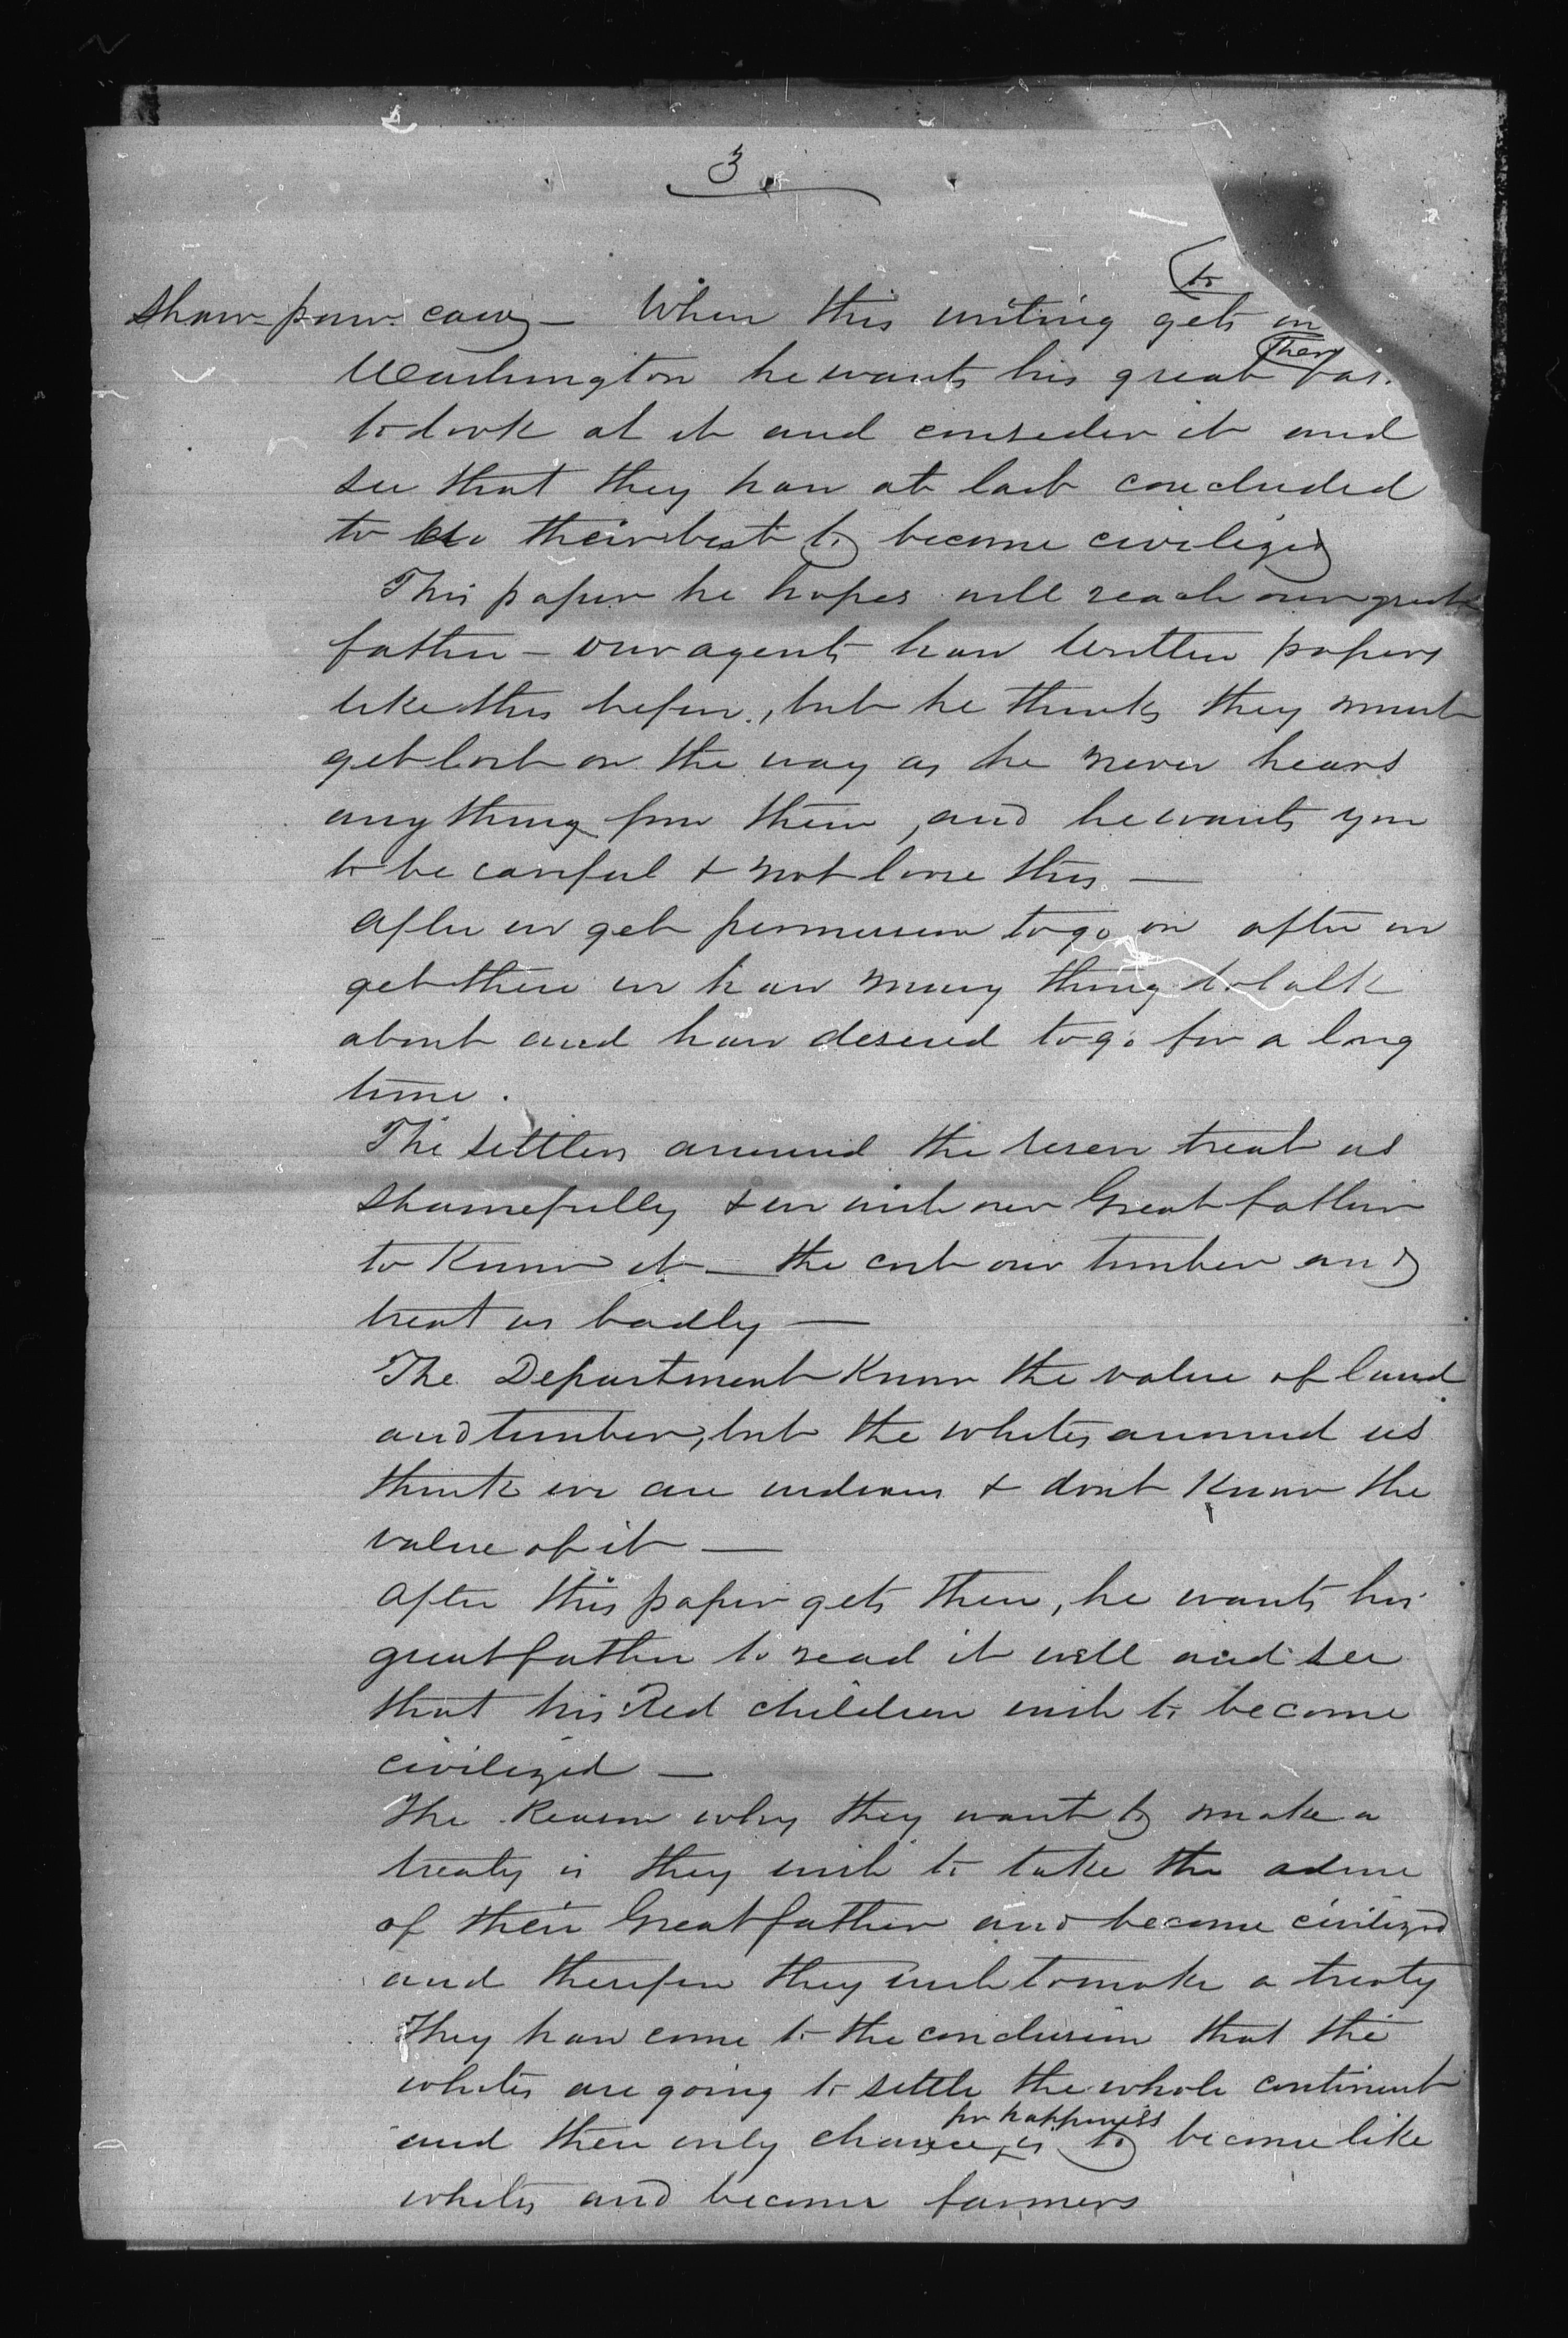 3
Shaw-paw-caug — When this writing gets in
to
Washington he wants his great fat
ther
to look at it and consider it and
see that they have at last concluded
to do their best to become civilized
This paper he hopes will reach our great
father — our agents have written papers
like this before, but he thinks they must
get lost on the way as he never hears
anything from them, and he wants you
to be careful & not loose this —
After we get permission to go on after we
get there we have many thing to talk
about and have desired to go for a long
time.
The settlers around the reserv treat us
shamefully & we wish our Great father
to know it — the cut our timber and
treat us badly —
The Department know the value of land
and timber, but the whites around us
think we are indians & dont know the
value of it —
After this paper gets there, he wants his
great father to read it well and see
that his Red children wish to become
civilized —
The Reason why they want to make a
treaty is they wish to take the advice
of their Great father and become civilized
and therefore they wish to make a treaty
They have come to the conclusion that the
whites are going to settle the whole continent
for happiness
and their only chance is to become like
whites and become farmers